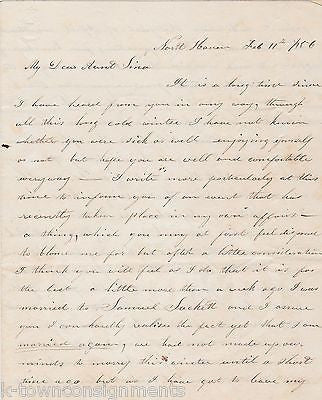 North Haven Feb 11th 1856
My Dear Aunt Sina
It is a long time since
I have heard from you in any way, though
all this long cold winter I have not known
whether you were sick or well enjoying yourself
or not but hope you are well and comfortable
everyway — I write more particularly at this
time to inform you of an event that has
recently taken place in my own affairs —
a thing which you may at first feel disposed
to blame me for but after a little consideration
I think you will feel as I do that it is for
the best a little more than a week ago I was
married to Samuel Sackett and I assure
you I can hardly realize the fact yet that I am
married again, we had not made up our
minds to marry this winter until a short
time ago but as I have got to leave my
k-townconsignments